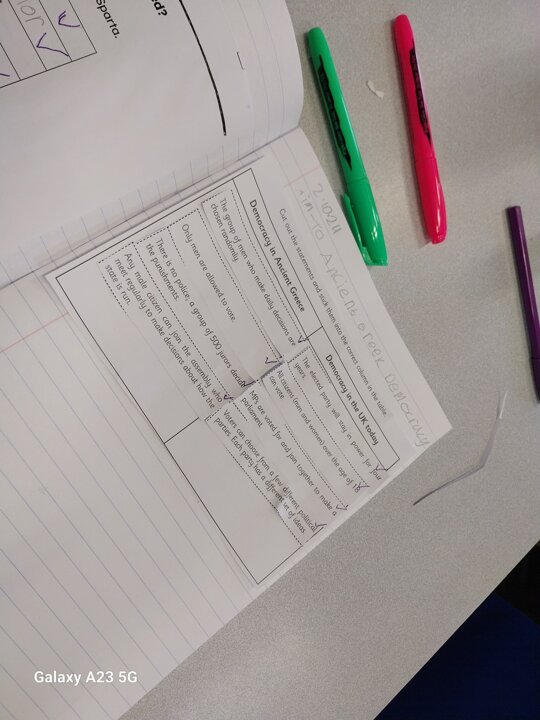 d?
Sparta.
Ancient Greek Democracy
Cut out the statements and stick them into the correct column in the table.
Democracy in Ancient Greece
The group of men who make daily decisions are
chosen randomly.
Only men are allowed to vote.
There is no police, a group of 500 jurors
the punishments.
Any male citizen can join the assembly who
meet regularly to make decisions about how the
state is run.
Democracy in the UK today
The elected party will stay in power for four
years.
All citizens (men and women) over the age of 18
can vote.
MPs are voted for and join together to make a
parliament.
Voters can choose from a few different political
parties. Each party has a different set of ideas.
Galaxy A23 5G